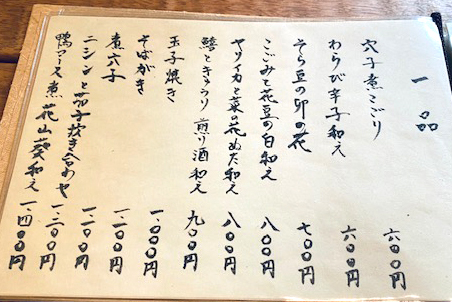 一品
穴子煮こごり 六〇〇円
わらび辛子和え 六〇〇円
そら豆の卯の花 七〇〇円
こごみと花豆の白和え 八〇〇円
ヤリイカと菜の花ぬた和え 八〇〇円
鱚ときうり 煎り酒和え 九〇〇円
玉子焼き 一.〇〇〇円
そばがき 一.一〇〇円
煮穴子
ニシンと茄子炊き合わせ 一.三〇〇円
鴨ロース煮 花山葵和え 一.四〇〇円